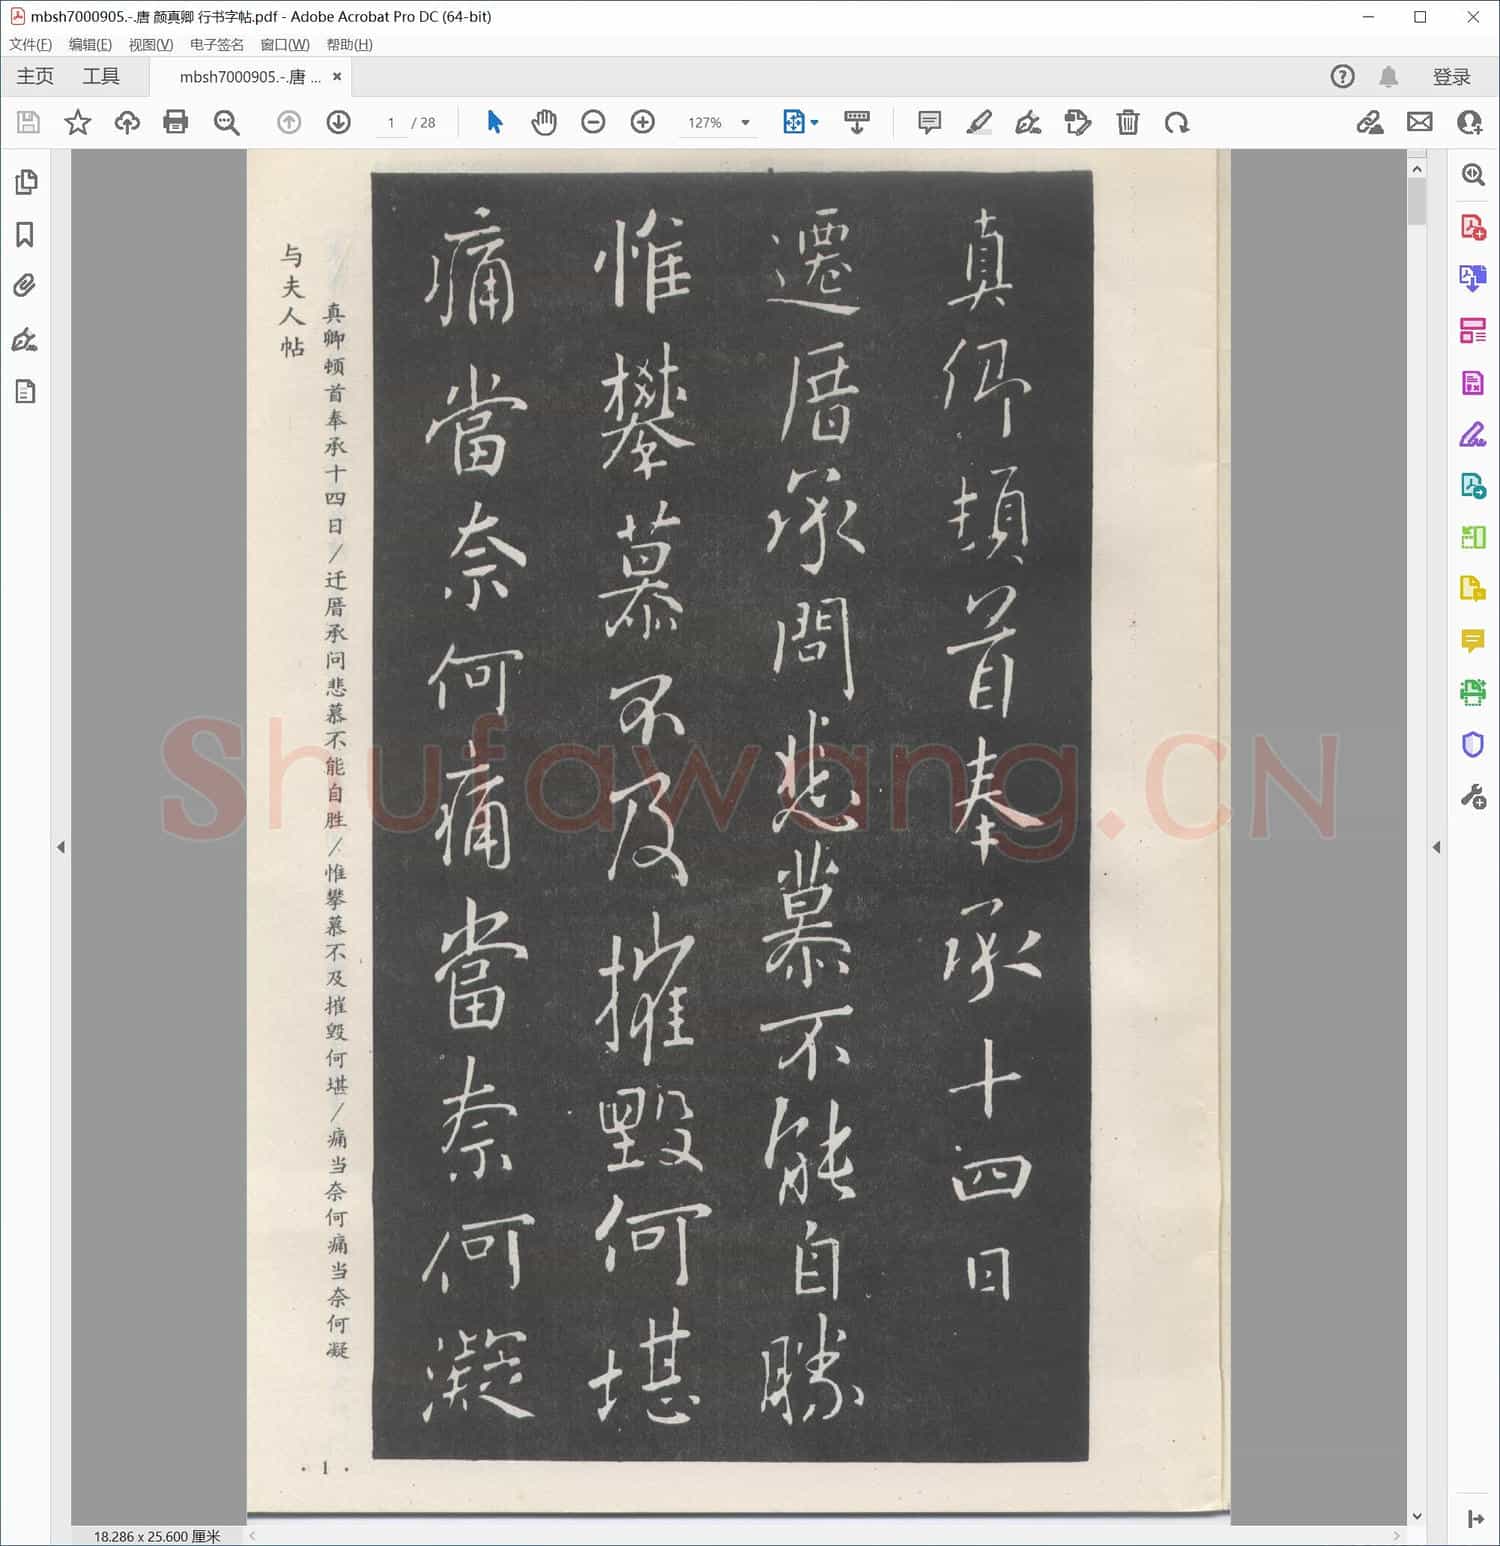 mbsh7000905.-.唐 颜真卿 行书字帖.pdf - Adobe Acrobat Pro DC (64-bit)
文件(F) 编辑(E) 视图(V) 电子签名 窗口(W) 帮助(H)
主页 工具 mbsh7000905.-.唐 ... × 登录
1 / 28 127%
真卿頓首奉承十四日
遷厝承問悲慕不能自勝
惟攀慕不及摧毀何堪
痛當奈何痛當奈何凝
真卿顿首奉承十四日/迁厝承问悲慕不能自胜/惟攀慕不及摧毁何堪/痛当奈何痛当奈何凝
与夫人帖
Shufawang.CN
· 1 ·
18.286 x 25.600 厘米